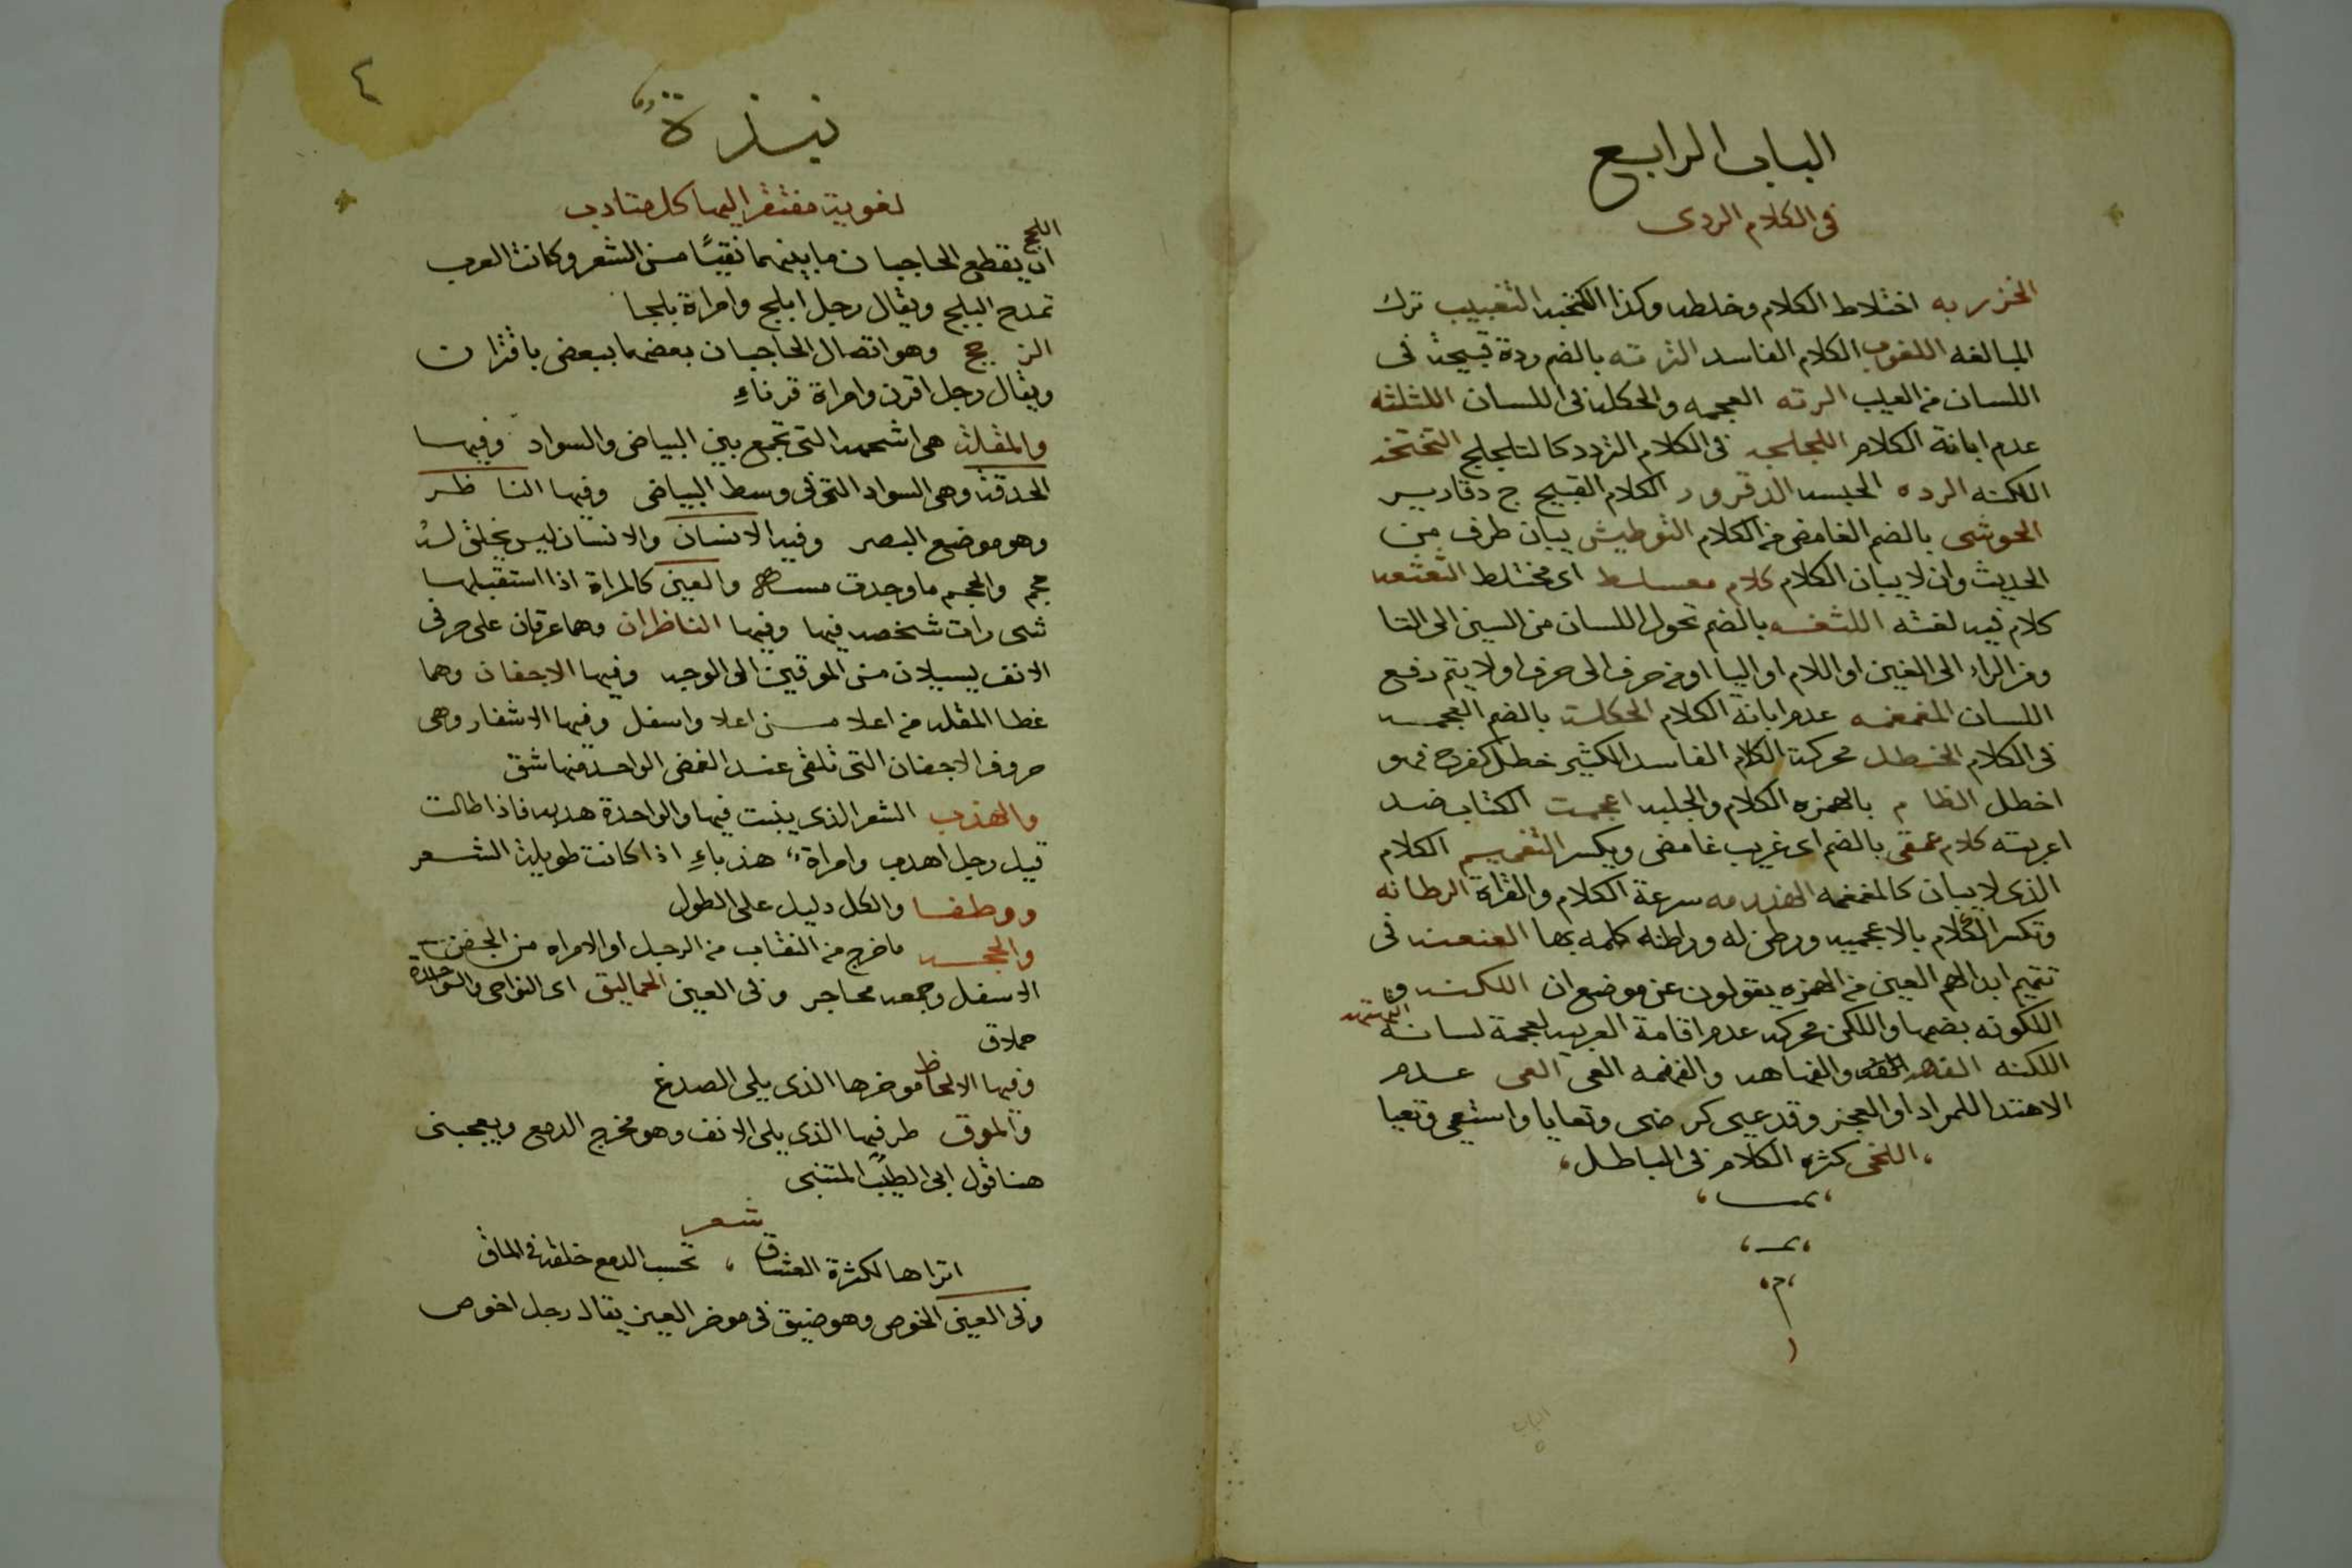 الباب الرابع
فى الكلام الردى
الخزربه اختلاط الكلام وخلطه وكذا التغبيب ترك
المبالغه الكلام الفاسد الرته بالضم ردة قبيحة فى
اللسان من العيب الرته العجمه والحكله فى اللسان اللثلثه
عدم ابانة الكلام اللجلجه فى الكلام التردد كالتلجلج التختخه
اللكنه الرده الحبسه الدقرور الكلام القبيح ج دقارير
الحوشى بالضم الغامض من الكلام التوطيش بيان طرف من
الحديث وان لا يبان الكلام كلام معسلط اى مختلط التعتعه
كلام فيه لغثه اللثغه بالضم تحول اللسان من السين الى الثا
ومن الراء الى الغين او اللام او اليا او من حرف الى حرف او لا يتم رفع
اللسان المغمغمه عدم ابانة الكلام الحكلة بالضم العجمه
فى الكلام الخطل محركة الكلام الفاسد الكثير خطل كفرح فهو
اخطل الظام بالهمزه الكلام والجلبه اعجمت الكتاب ضد
اعربته كلام عمقى بالضم اى غريب غامض ويكسر التغميم الكلام
الذى لا يبان كالمغمغمه الهذرمه سرعة الكلام والقراة الرطانه
وتكسر الكلام بالاعجميه ورطن له وراطنه كلمه بها العنعنه فى
تميم ابدالهم العين من الهمزه يقولون عن موضع ان اللكنه و
اللكونه بضمها واللكن محركه عدم اقامة العربيه لعجمة لسانه
اللكنه الفهه والفهاهه والفهفهه العى العى عدم
الاهتدا للمراد او العجز وقد عيى كرضى وتعايا واستعيى وتعيا
اللخى كثره الكلام فى الباطل
م
٤
نبذة
لغوية مفتقر اليها كل متادب
البلج
ان يقطع الحاجبان ما بينهما نقيًا من الشعر وكانت العرب
تمدح البلج ويقال رجل ابلج وامراة بلجا
الزجج وهو اتصال الحاجبان بعضهما ببعض باقتران
ويقال رجل اقرن وامراة قرناءِ
والمقلة هى الشحمه التى تجمع بين البياض والسواد وفيها
الحدقة وهى السواد التى فى وسط البياض وفيها الناظر
وهو موضع البصر وفيه الانسان والانسان ليس بخلق له
حجم والحجم ما وجدت مسه والعين كالمراة اذا استقبلها
شى رات شخصه فيها وفيها الناظران وهما عرقان على حرفى
الانف يسيلان من الموقين الى الوجه وفيها الاجفان وهما
غطا المقله من اعلا واسفل وفيها الاشفار وهى
حروف الاجفان التى تلتقى عند الغمض الواحد منها شفر
والهذب الشعر الذى ينبت فيها والواحدة هدبه فاذا طالت
قيل رجل اهدب وامراة هذباءِ اذا كانت طويلة الشعر
ووطفا والكل دليل على الطول
والمحجر ما خرج من النقاب من الرجل او الامراه من الجفن
الاسفل وجمعه محاجر وفى العين الحماليق اى النواحى والواحدة
حملاق
وفيها الالحاظ موخرها الذى يلى الصدغ
والموق طرفيها الذى يلى الانف وهو مخرج الدمع ويعجبنى
هنا قول ابى الطيب المتنبى
شعر
اتراها لكثرة العشاق ، تحسب الدمع خلقة فى الماقى
وفى العين الخوص وهو ضيق فى موخر العين يقال رجل اخوص